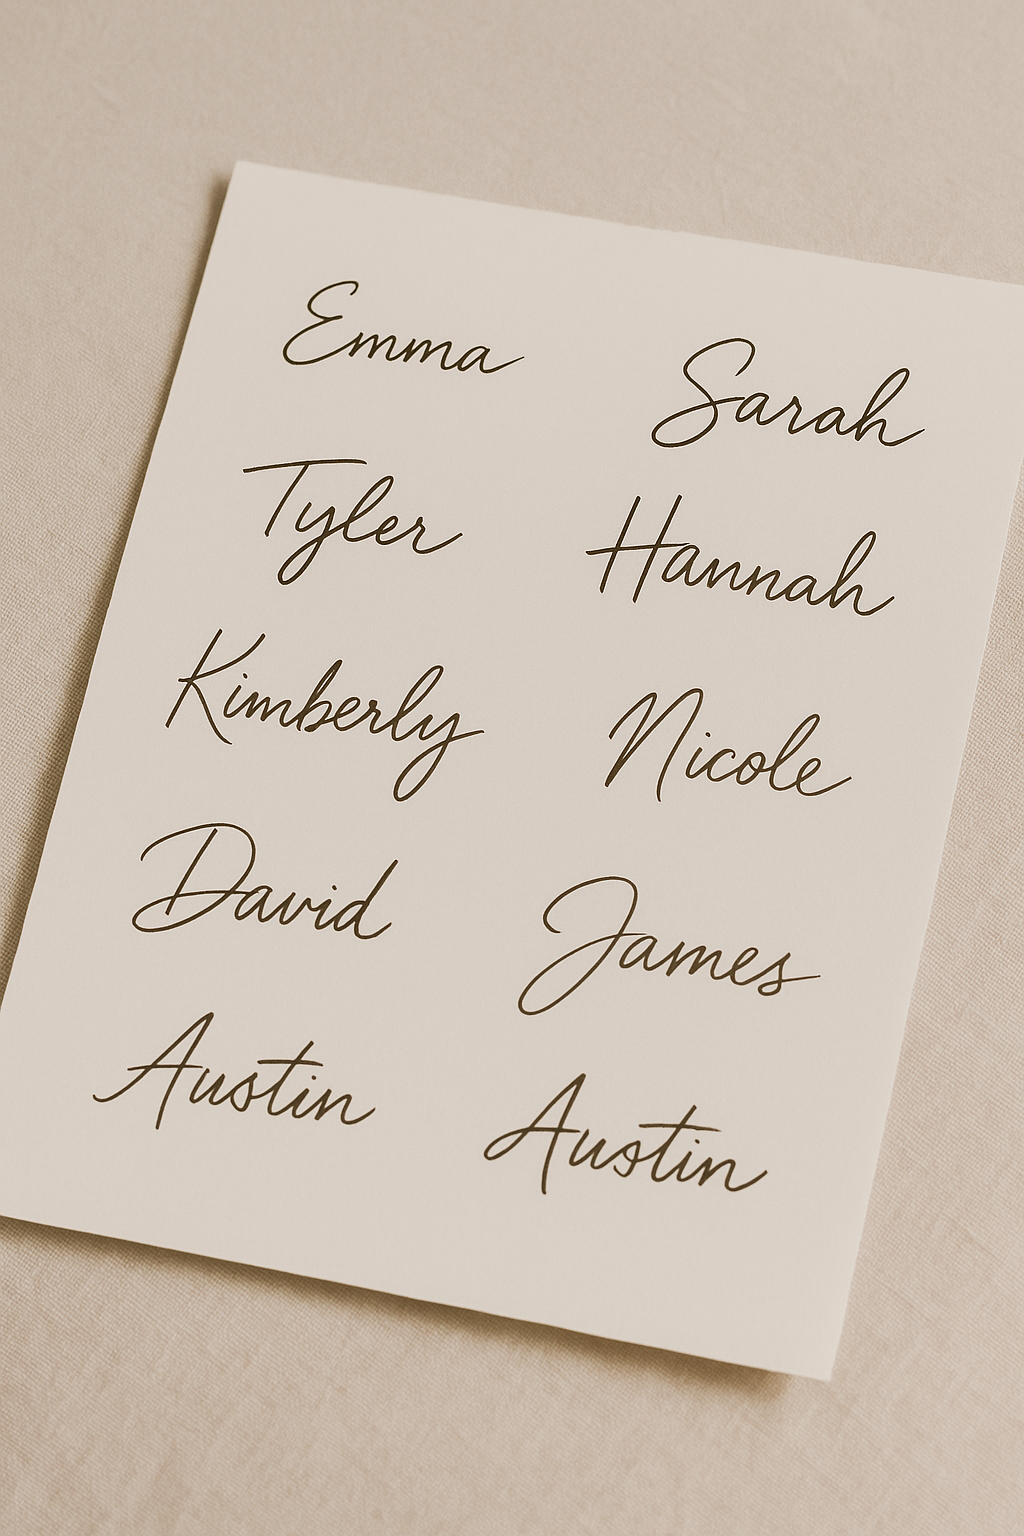 Emma Sarah
Tyler Hannah
Kimberly Nicole
David James
Austin Austin